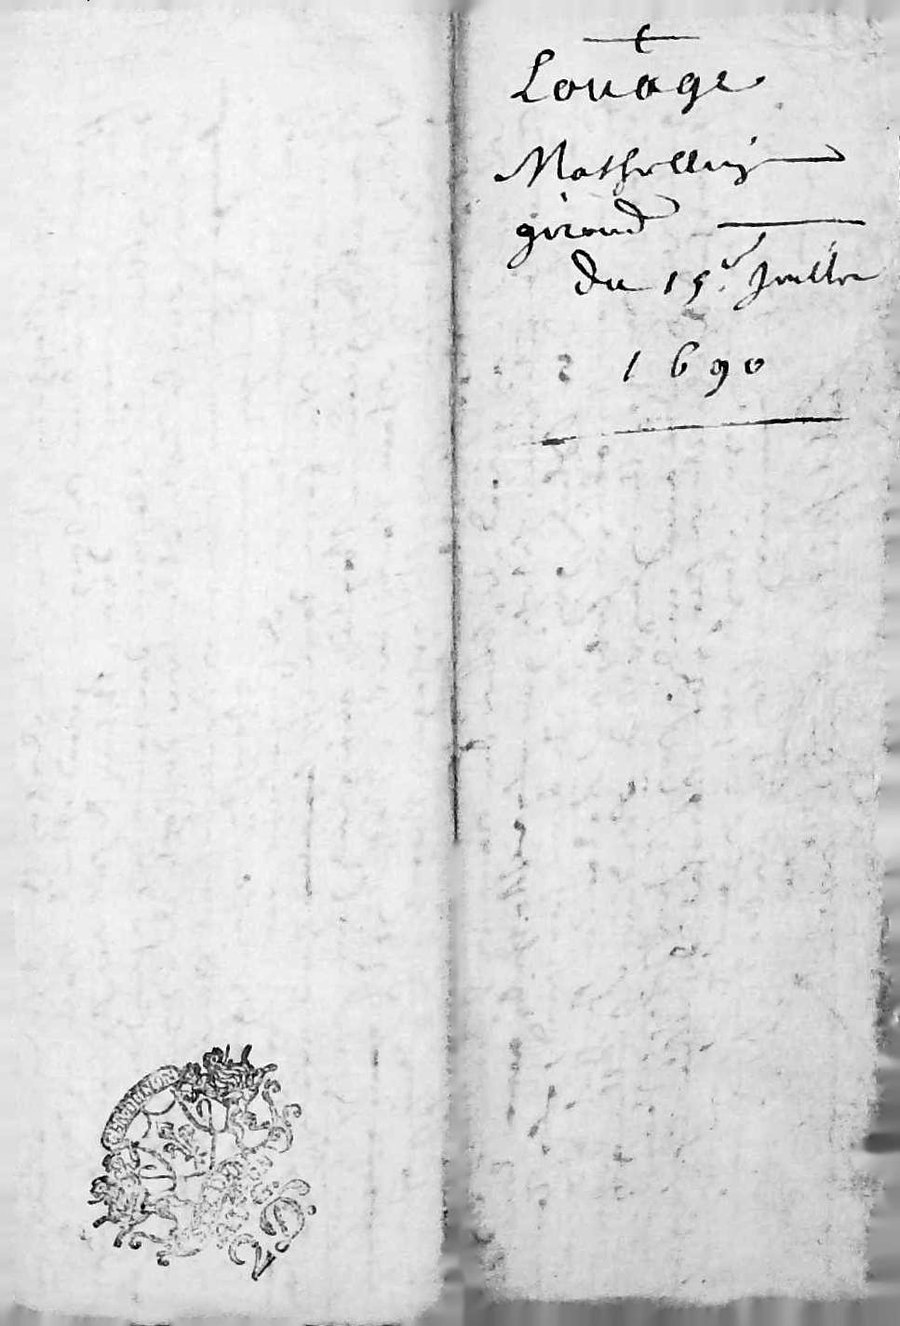 Louage
Mathelling
giroud
du 15.e Juillr
1690